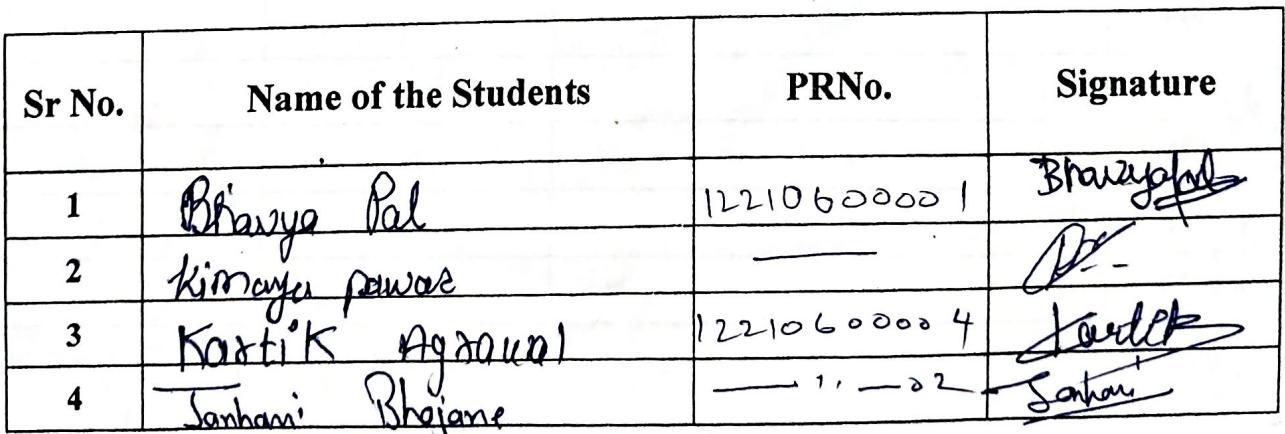 Sr No. Name of the Students PRNo. Signature
1 Bhavya Pal 12210600001 Bhavyapal
2 Kimaya pawar —
3 Kartik Agrawal 12210600004 Kartik
4 Janhavi Bhojane — 11 — 02 Janhavi